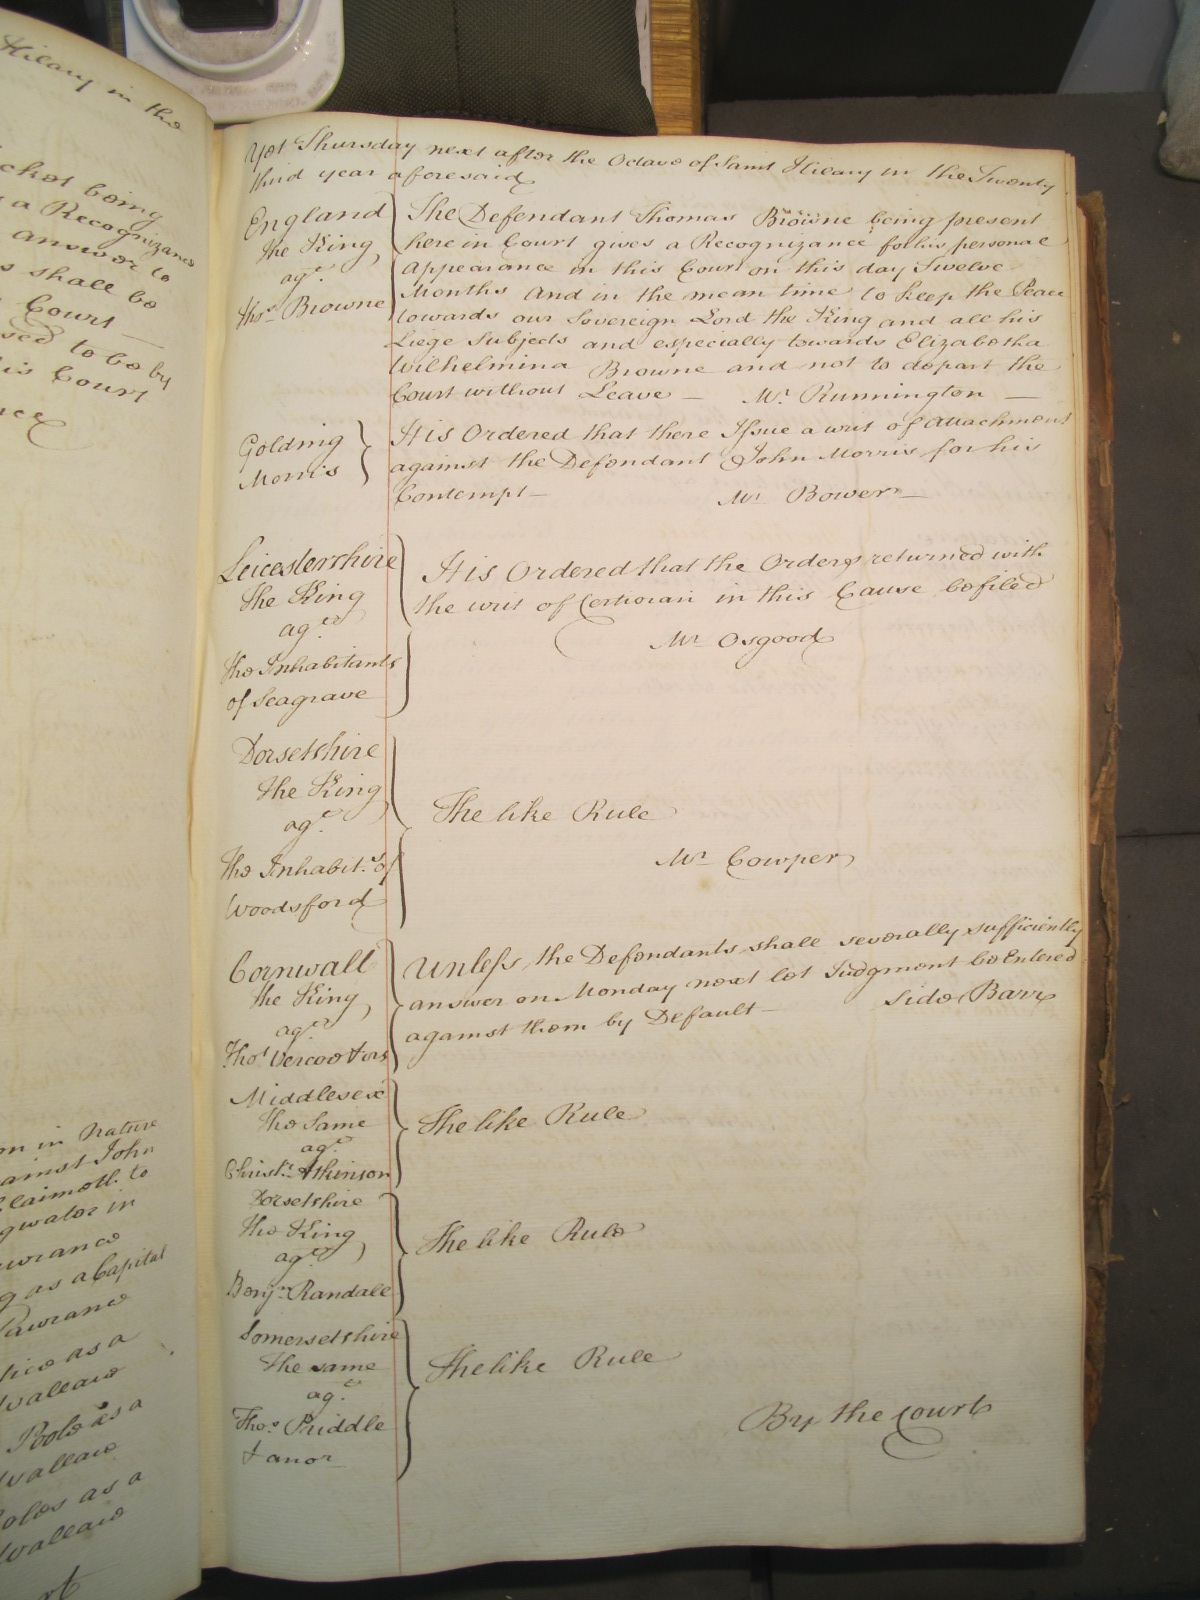 Hilary in the
cket being
a Recognizance
answer to
s shall be
Court
sed to be by
is Court
nce
on in Nature
ainst John
Claimott to
gwater in
awrance
g as a Capital
Lawrance
tice as a
Wallace
Poole as a
Wallace
ooles as a
Wallace
Yet Thursday next after the Octave of Saint Hilary in the Twenty
third year aforesaid
England
the King
agt.
Thos. Browne
The Defendant Thomas Browne being present
here in Court gives a Recognizance for his personal
Appearance in this Court on this day Twelve
Months And in the mean time to keep the Peace
towards our Sovereign Lord the King and all his
Liege Subjects and especially towards Elizabetha
Wilhelmina Browne and not to depart the
Court without Leave — Mr. Runnington —
Golding
Morris
It is Ordered that there Issue a writ of Attachment
against the Defendant John Morris for his
Contempt — Mr. Bower —
Leicestershire
the King
agt.
the Inhabitants
of Seagrave
It is Ordered that the Orders returned with
the writ of Certiorari in this Cause be filed
Mr. Osgood
Dorsetshire
the King
agt.
the Inhabits. of
Woodsford
The like Rule
Mr. Cowper
Cornwall
the King
agt.
Thos. Vercoe & ors
Unless the Defendants shall severally sufficiently
answer on Monday next let Judgment be Entered
against them by Default — Side Barr
Middlesex
the Same
agt.
Christr. Atkinson
The like Rule
Dorsetshire
the King
agt.
Benjn. Randall
The like Rule
Somersetshire
the same
agt.
Thos. Priddle
& anor
The like Rule
By the Court